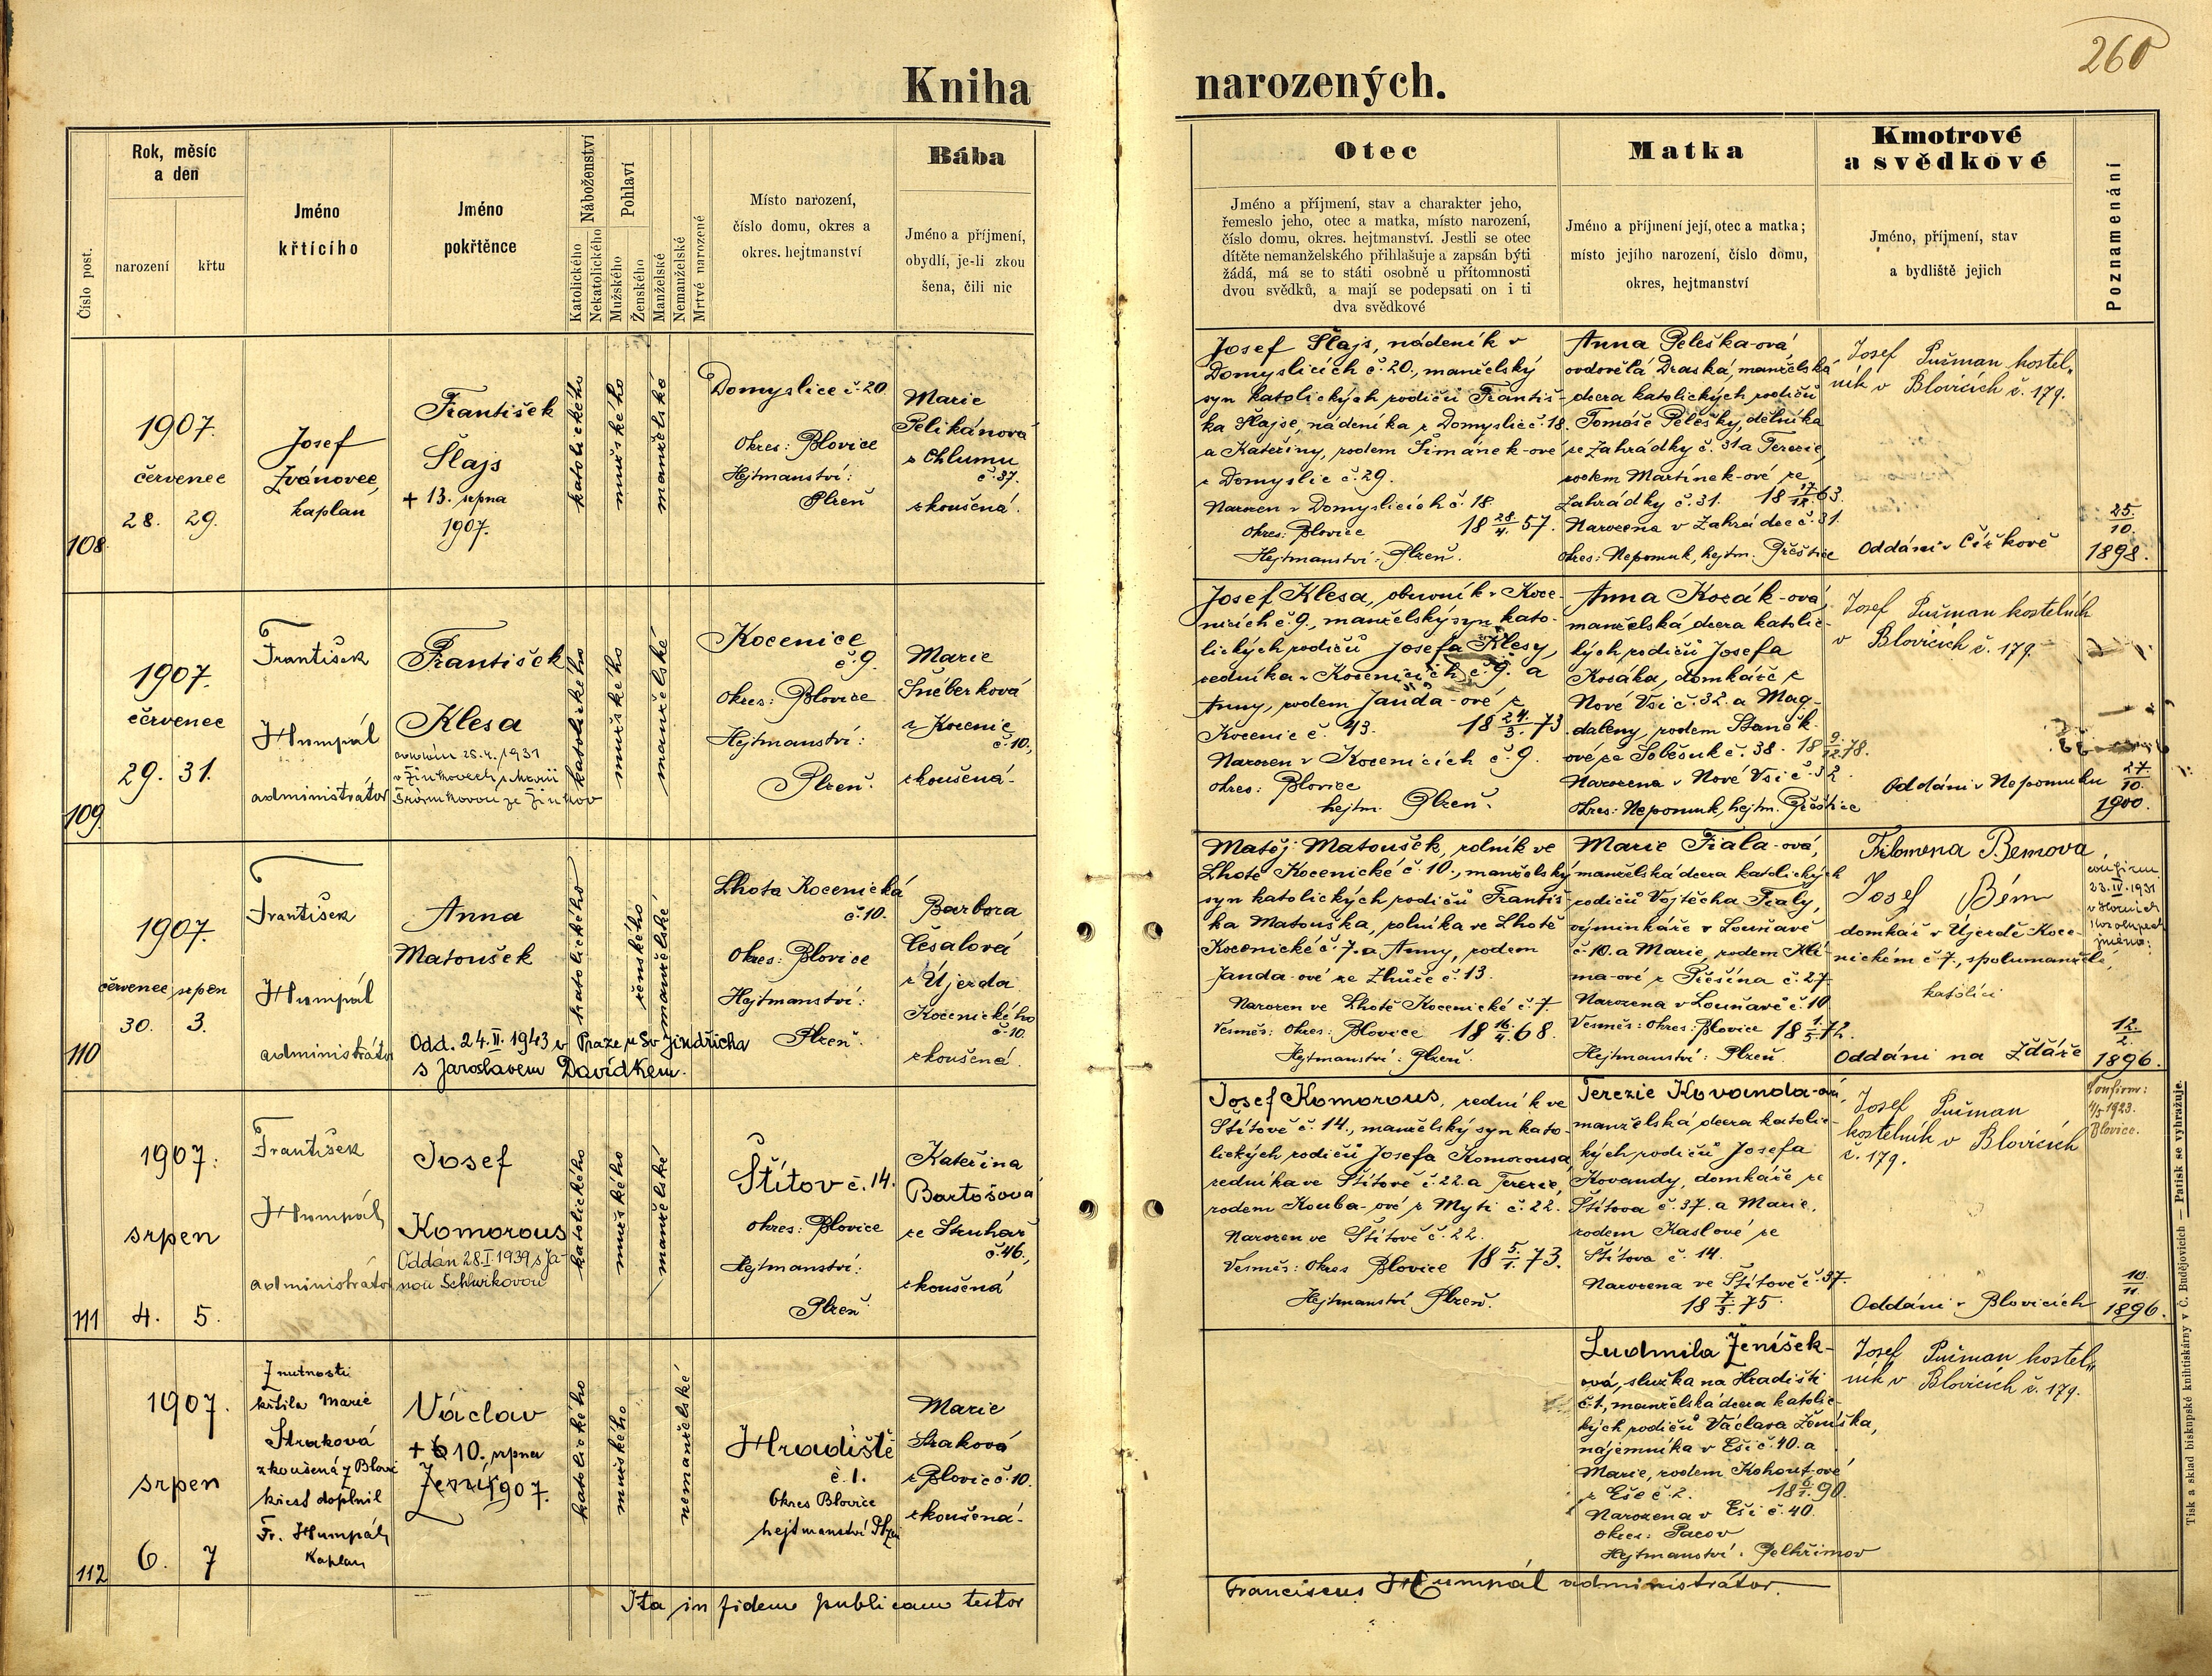 260
Kniha narozených.
Číslo post.
Rok, měsíc
a den
narození
křtu
Jméno
křtícího
Jméno
pokřtěnce
Náboženství
Katolického
Nekatolického
Pohlaví
Mužského
Ženského
Manželské
Nemanželské
Mrtvě narozené
Místo narození,
číslo domu, okres a
okres. hejtmanství
Bába
Jméno a příjmení,
obydlí, je-li zkou
šena, čili nic
Otec
Jméno a příjmení, stav a charakter jeho,
řemeslo jeho, otec a matka, místo narození,
číslo domu, okres. hejtmanství. Jestli se otec
dítěte nemanželského přihlašuje a zapsán býti
žádá, má se to státi osobně u přítomnosti
dvou svědků, a mají se podepsati on i ti
dva svědkové
Matka
Jméno a příjmení její, otec a matka;
místo jejího narození, číslo domu,
okres, hejtmanství
Kmotrové
a svědkové
Jméno, příjmení, stav
a bydliště jejich
Poznamenání
108
1907.
červenec
28. 29.
Josef
Zvánovec,
kaplan
František
Šlajs
+ 13. srpna
1907.
katolického
mužského
manželské
Domyslice č. 20
Okres: Blovice
Hejtmanství:
Plzeň
Marie
Pelikánová
z Chlumu
č. 37.
zkoušená.
Josef Šlajs, nádeník v
Domyslicích č. 20., manželský
syn katolických rodičů Františ-
ka Šlajse, nádeníka z Domyslic č. 18.
a Kateřiny, rodem Šimánek-ové
z Domyslic č. 29.
Narozen v Domyslicích č. 18.
okres: Blovice 18 28/4. 57.
Hejtmanství: Plzeň.
Anna Peleška-ová
ovdovělá Draská, manželská
dcera katolických rodičů
Tomáše Pelešky, dělníka
ze Zahrádky č. 31 a Terezie,
rodem Martínek-ové ze
Zahrádky č. 31. 18 17/12 63.
Narozena v Zahrádce č. 31.
okres: Nepomuk, hejtm. Přeštice
Josef Pušman kostel„
ník v Blovicích č. 179.
Oddáni v Čížkově
25.
10.
1898.
109.
1907.
červenec
29. 31.
František
Humpál
administrátor
František
Klesa
oddán 25.4./1931
v Žinkovech s Marií
ze Žinkov
katolického
mužského
manželské
Kocenice
č. 9.
okres: Blovice
Hejtmanství:
Plzeň.
Marie
Šnéberková
z Kocenic
č. 10.,
zkoušená.
Josef Klesa, obuvník v Koce-
nicích č. 9., manželský syn kato-
lických rodičů Josefa Klesy,
zedníka v Kocenicích č. 9. a
Anny, rodem Janda-ové z
Kocenic č. 43. 18 24./3. 73
Narozen v Kocenicích č. 9.
okres: Blovice
hejtm. Plzeň.
Anna Kozák-ová,
manželská dcera katolic-
kých rodičů Josefa
Kozáka, domkáře z
Nové Vsi č. 32. a Mag-
daleny, rodem Staněk-
ové ze Soběsuk č. 38. 18 9./12. 78.
Narozena v Nové Vsi č. 32.
Okres: Nepomuk, hejtm. Přeštice
Josef Pušman kostelník
v Blovicích č. 179.
Oddáni v Nepomuku
27
10.
1900.
110
1907.
červenec srpen
30. 3.
František
Humpál
administrátor
Anna
Matoušek
Odd. 24.II. 1943 v Praze u Sv Jindřicha
s Jaroslavem Davídkem.
katolického
ženského
manželské
Lhota Kocenická
č. 10.
okres: Blovice
Hejtmanství:
Plzeň.
Barbora
Česalová
z Újezda
Kocenického
č. 10.
zkoušená.
Matěj Matoušek, rolník ve
Lhotě Kocenické č. 10., manželský
syn katolických rodičů Františ-
ka Matouška, rolníka ve Lhotě
Kocenické č. 7. a Anny, rodem
Janda-ové ze Zhůře č. 13.
Narozen ve Lhotě Kocenické č. 7.
Vesměs: okres: Blovice 18 16/4. 68.
Hejtmanství: Plzeň.
Marie Fiala-ová,
manželská dcera katolických
rodičů Vojtěcha Fialy,
výminkáře v Louňavě
č. 10. a Marie, rodem Klí-
ma-ové z Číčína č. 27
Narozena v Louňavě č. 10
Vesměs: okres: Blovice 18 1./5. 72.
Hejtmanství: Plzeň
Filomena Bémova,
Josef Bém
domkař v Újezdě Koce-
nickém č. 7., spolumanželé,
katolíci
Oddáni na Žďáře
confirm.
23. IV. 1931
v Horních
jméno:
12
2.
1896.
111
1907.
srpen
4. 5.
František
Humpál
administrátor
Josef
Komorous
Oddán 28.I. 1939 s Ja-
nou Schwikovou
katolického
mužského
manželské
Štítov č. 14.
okres: Blovice
Hejtmanství:
Plzeň
Kateřina
Bartošová
ze Struhař
č. 46.,
zkoušená
Josef Komorous, zedník ve
Štítově č. 14., manželský syn kato-
lických rodičů Josefa Komorousa,
zedníka ve Štítově č. 22. a Terezie,
rodem Kouba-ové z Mýti č. 22.
Narozen ve Štítově č. 22.
Vesměs: okres Blovice 18 5./1. 73.
Hejtmanství Plzeň.
Terezie Kovanda-ová,
manželská dcera katolic-
kých rodičů Josefa
Kovandy, domkáře ze
Štítova č. 37. a Marie,
rodem Kaslové ze
Štítova č. 14.
Narozena ve Štítově č. 37.
18 7/5. 75.
Josef Pušman
kostelník v Blovicích
č. 179.
Oddáni v Blovicích
Confirm:
1/5 1923.
Blovice.
10.
11.
1896.
112
1907.
srpen
6. 7
Z nutnosti
křtila Marie
Straková
zkoušená z Blovic
křest doplnil
Fr. Humpál
Kaplan
Václav
+ 10. srpna
1907.
katolického
mužského
nemanželské
Hradiště
č. 1.
Okres Blovice
hejtmanství Plzeň
Marie
Straková
z Blovic č. 10.
zkoušená.
Ludmila Jeníšek-
ová, služka na Hradišti
č. 1, manželská dcera katolic-
kých rodičů Václava Jeníška,
nájemníka v Eši č. 40. a
Marie, rodem Kohout-ové
z Eše č. 2. 18 6/1. 90.
Narozena v Eši č. 40.
okres: Pacov
Hejtmanství: Pelhřimov
Josef Pušman kostel„
ník v Blovicích č. 179.
Ita in fidem publicam testor
Franciscus Humpál administrátor.
Tisk a sklad biskupské knihtiskárny v Č. Budějovicích — Patisk se vyhražuje.